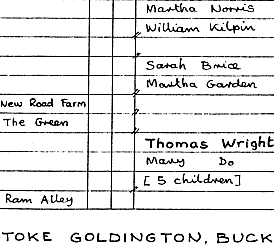 Martha Norris
William Kilpin
Sarah Brice
Martha Garden
New Road Farm
The Green
Thomas Wright
Mary Do
[ 5 children]
Ram Alley
TOKE GOLDINGTON, BUCK